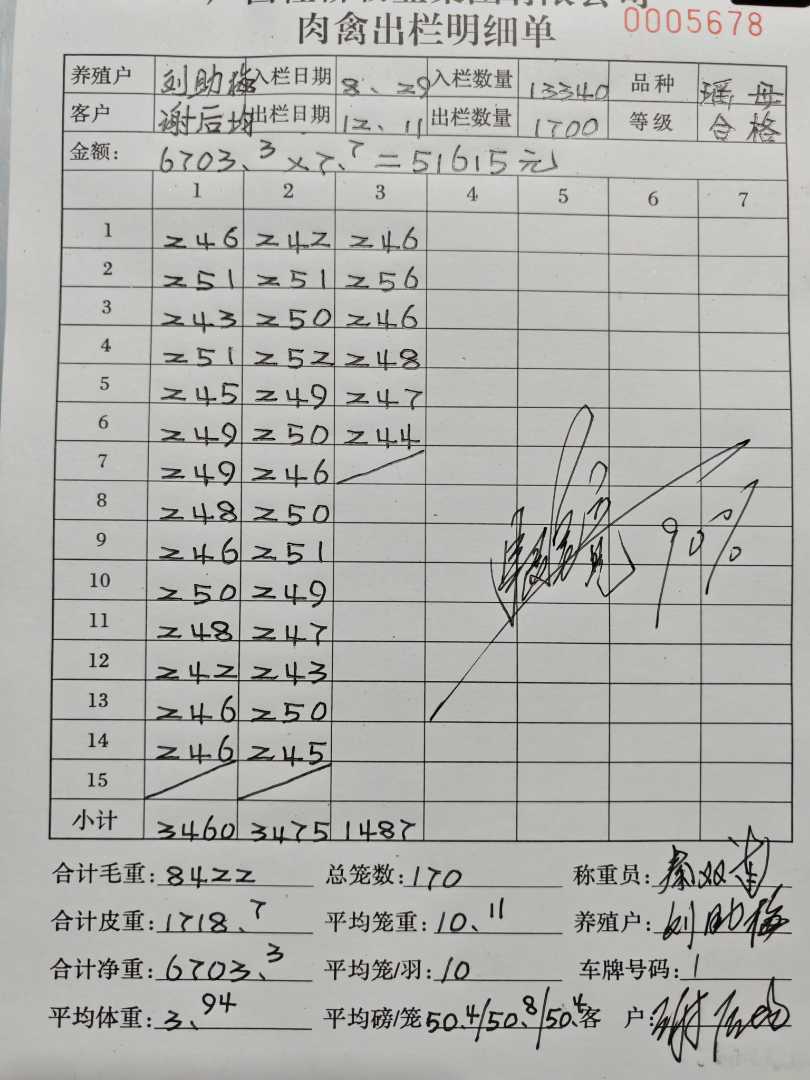 肉禽出栏明细单
0005678
养殖户 刘助梅 入栏日期 8、29 入栏数量 13340 品种 瑶母
客户 谢后均 出栏日期 12、11 出栏数量 1700 等级 合格
金额: 6703.3×7.7=51615元
1 2 3 4 5 6 7
1 246 242 246
2 251 251 256
3 243 250 246
4 251 252 248
5 245 249 247
6 249 250 244
7 249 246
8 248 250
9 246 251
10 250 249
11 248 247
12 242 243
13 246 250
14 246 245
15
90%
小计 3460 3475 1487
合计毛重: 8422 总笼数: 170 称重员:
合计皮重: 1718.7 平均笼重: 10.11 养殖户: 刘助梅
合计净重: 6703.3 平均笼/羽: 10 车牌号码: 1
平均体重: 3.94 平均磅/笼 50.4/50.8/50.4 客 户: